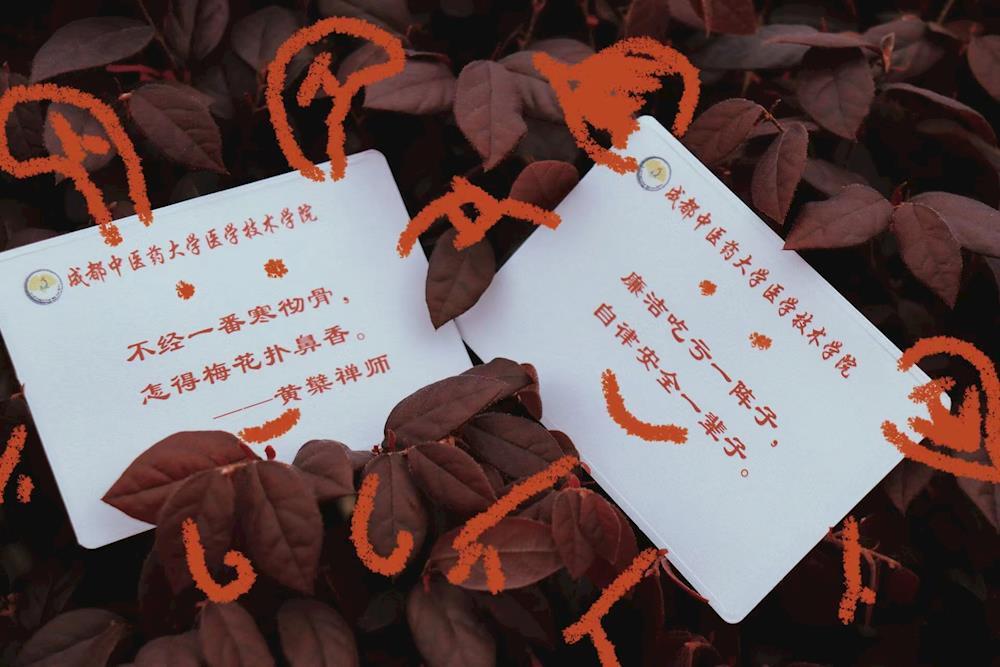 成都中医药大学医学技术学院
不经一番寒彻骨，
怎得梅花扑鼻香。
——黄檗禅师
成都中医药大学医学技术学院
廉洁吃亏一阵子，
自律安全一辈子。